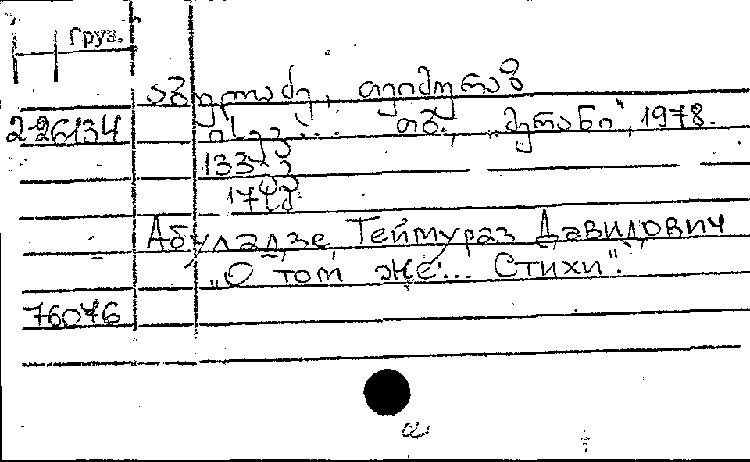 Груз.
აბულაძე, თეიმურაზ
2-26134 ისევ... თბ., „მერანი", 1978.
133 გვ.
Абуладзе, Теймураз Давидович
„О том же... Стихи".
76076